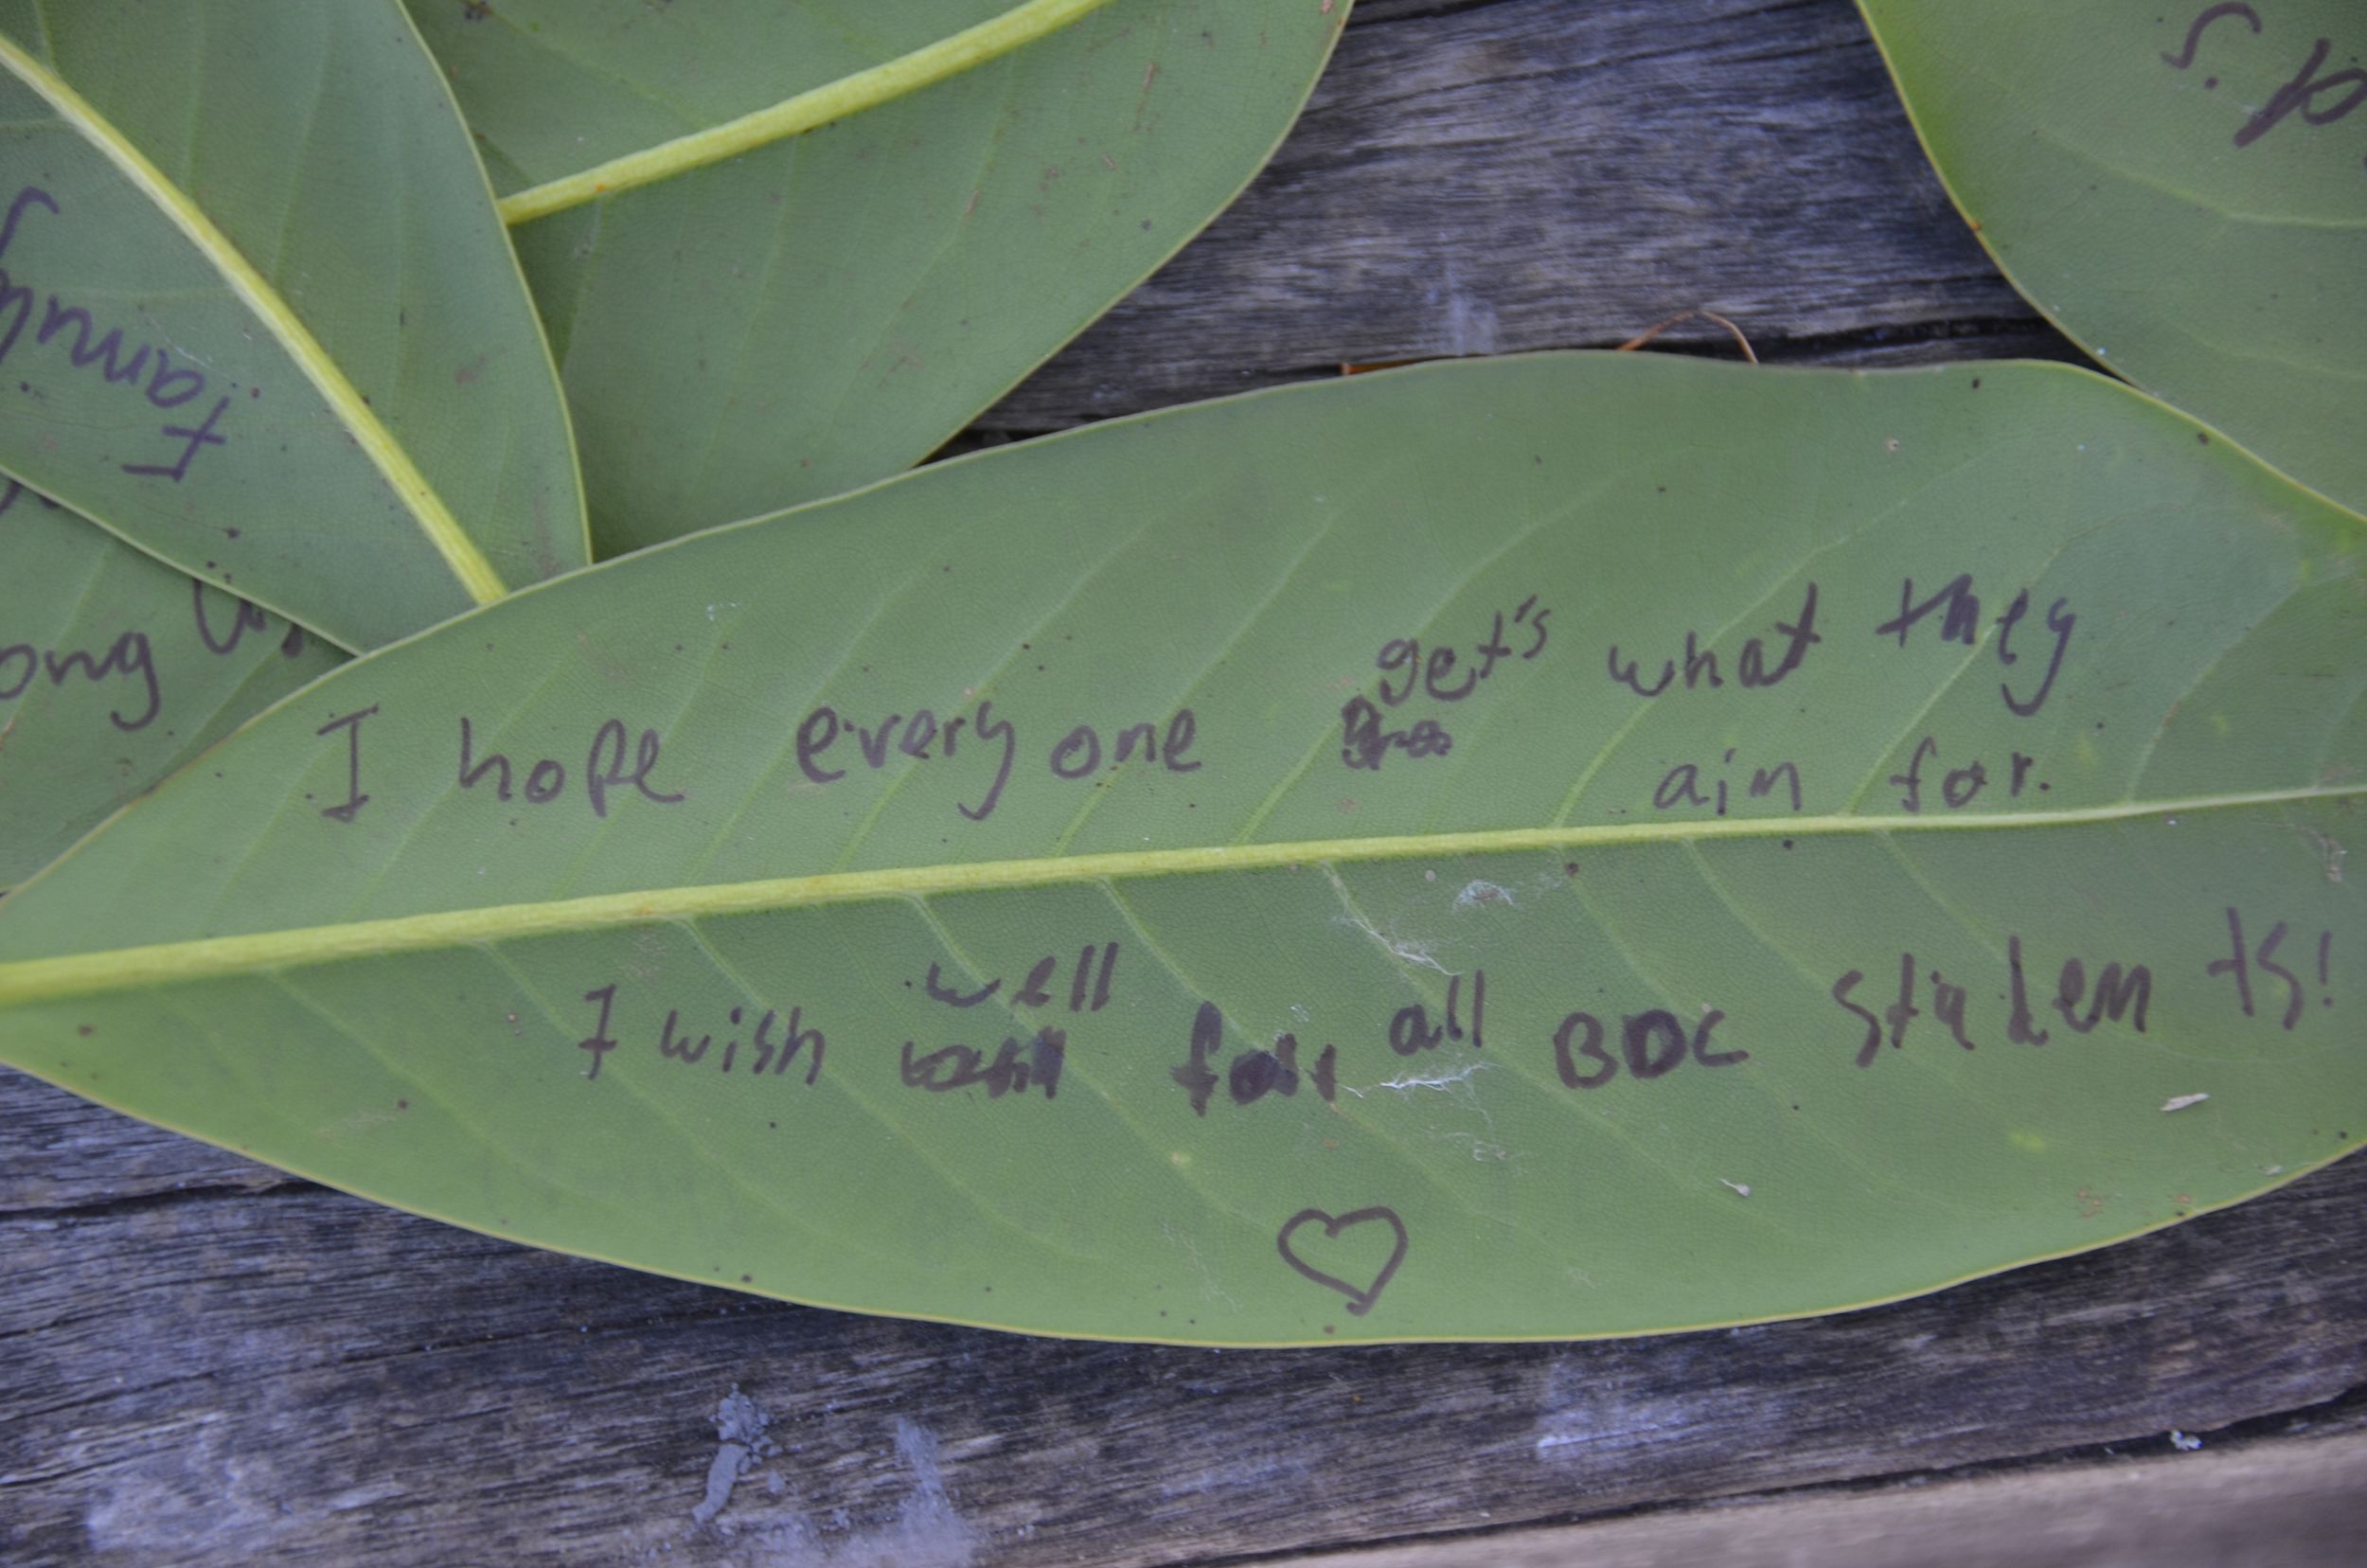 Family
ong
I hope every one get's what they
ain for.
I wish well for all BDC students!